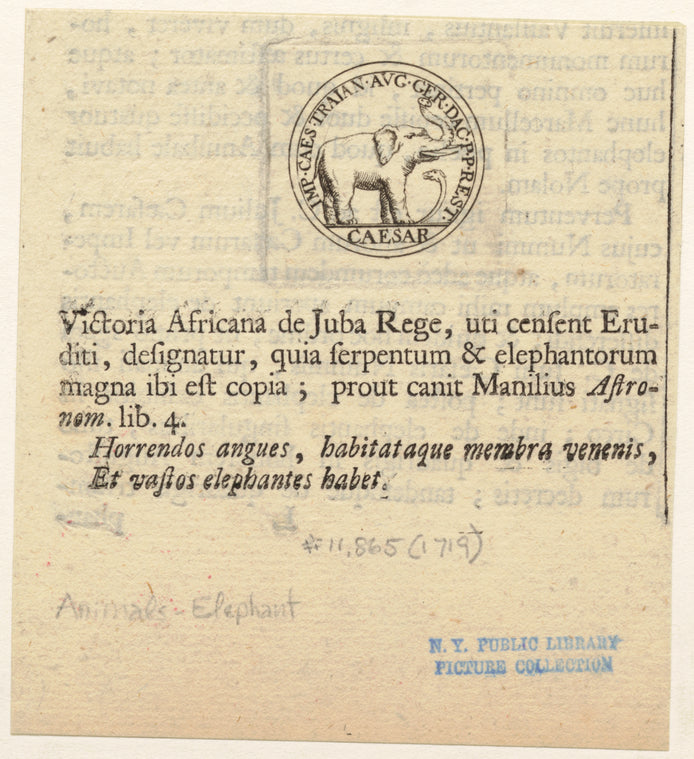 IMP·CAES·TRAIAN·AVG·GER·DAC·P·P·REST·
CAESAR
Victoria Africana de Juba Rege, uti cenſent Eru-
diti, deſignatur, quia ſerpentum & elephantorum
magna ibi eſt copia ; prout canit Manilius Aſtro-
nom. lib. 4.
Horrendos angues, habitataque membra venenis,
Et vaſtos elephantes habet.
#11,865 (1719)
Animals - Elephant
N. Y. PUBLIC LIBRARY
PICTURE COLLECTION